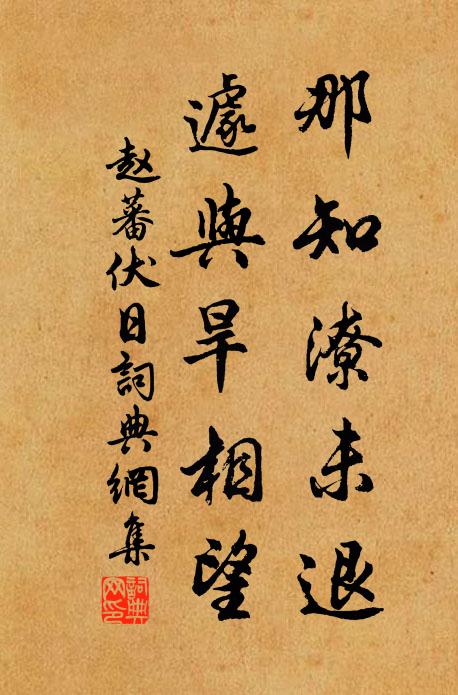 那知潦未退
遽與旱相望
赵蕃伏日詞典網集
詞典網印